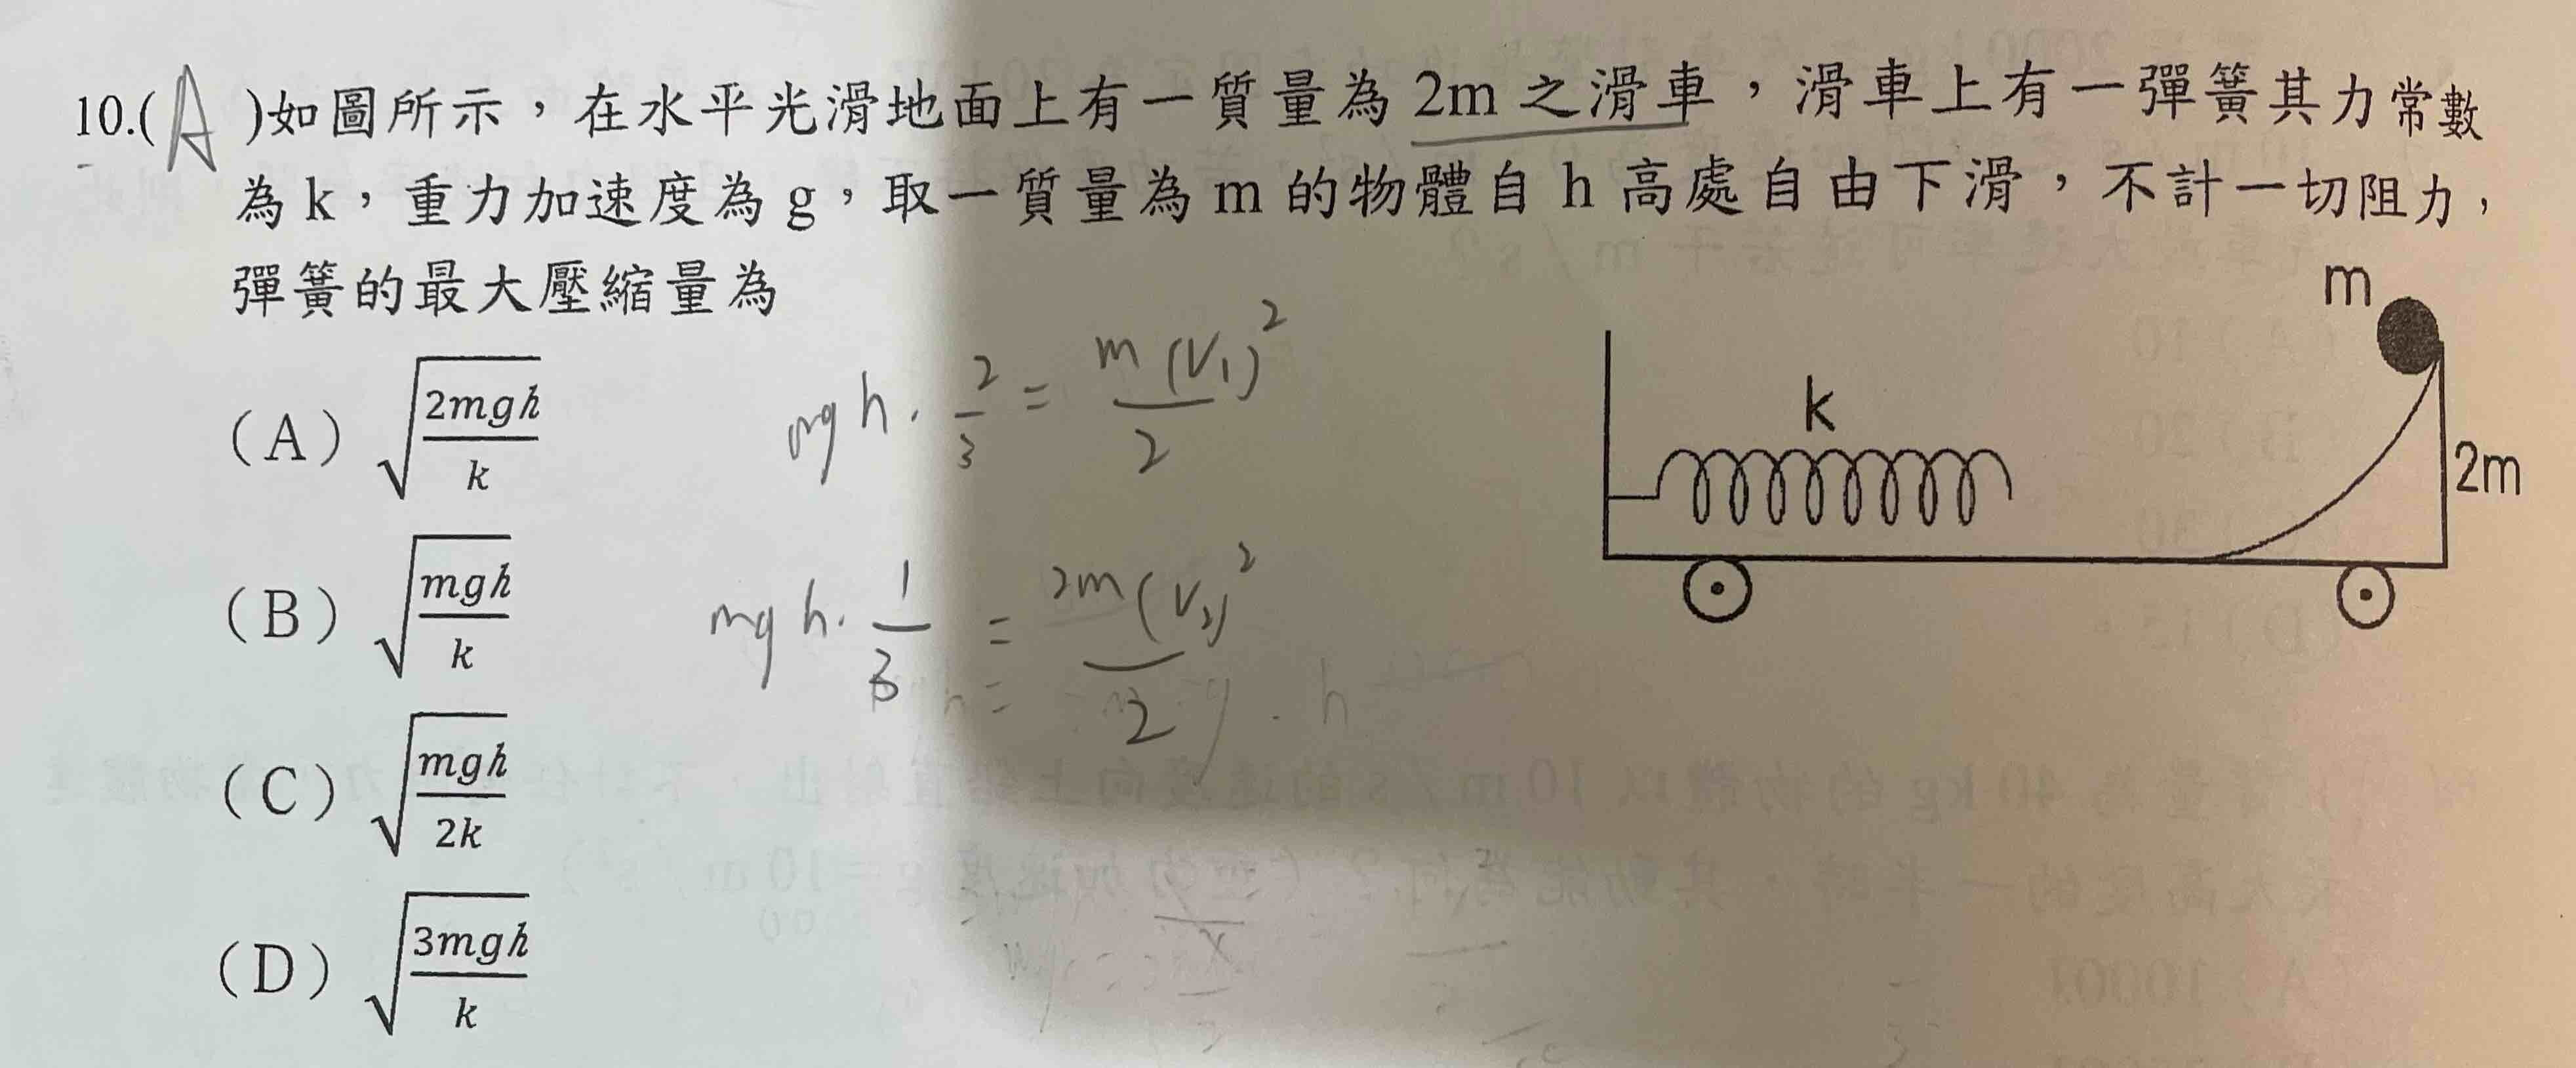 10.( A )如圖所示，在水平光滑地面上有一質量為 2m 之滑車，滑車上有一彈簧其力常數
為 k，重力加速度為 g，取一質量為 m 的物體自 h 高處自由下滑，不計一切阻力，
彈簧的最大壓縮量為
(A) √(2mgh/k)
(B) √(mgh/k)
(C) √(mgh/2k)
(D) √(3mgh/k)
mgh · 2/3 = m(V₁)²/2
mgh · 1/3 = 2m(V₂)²/2
m
k
2m